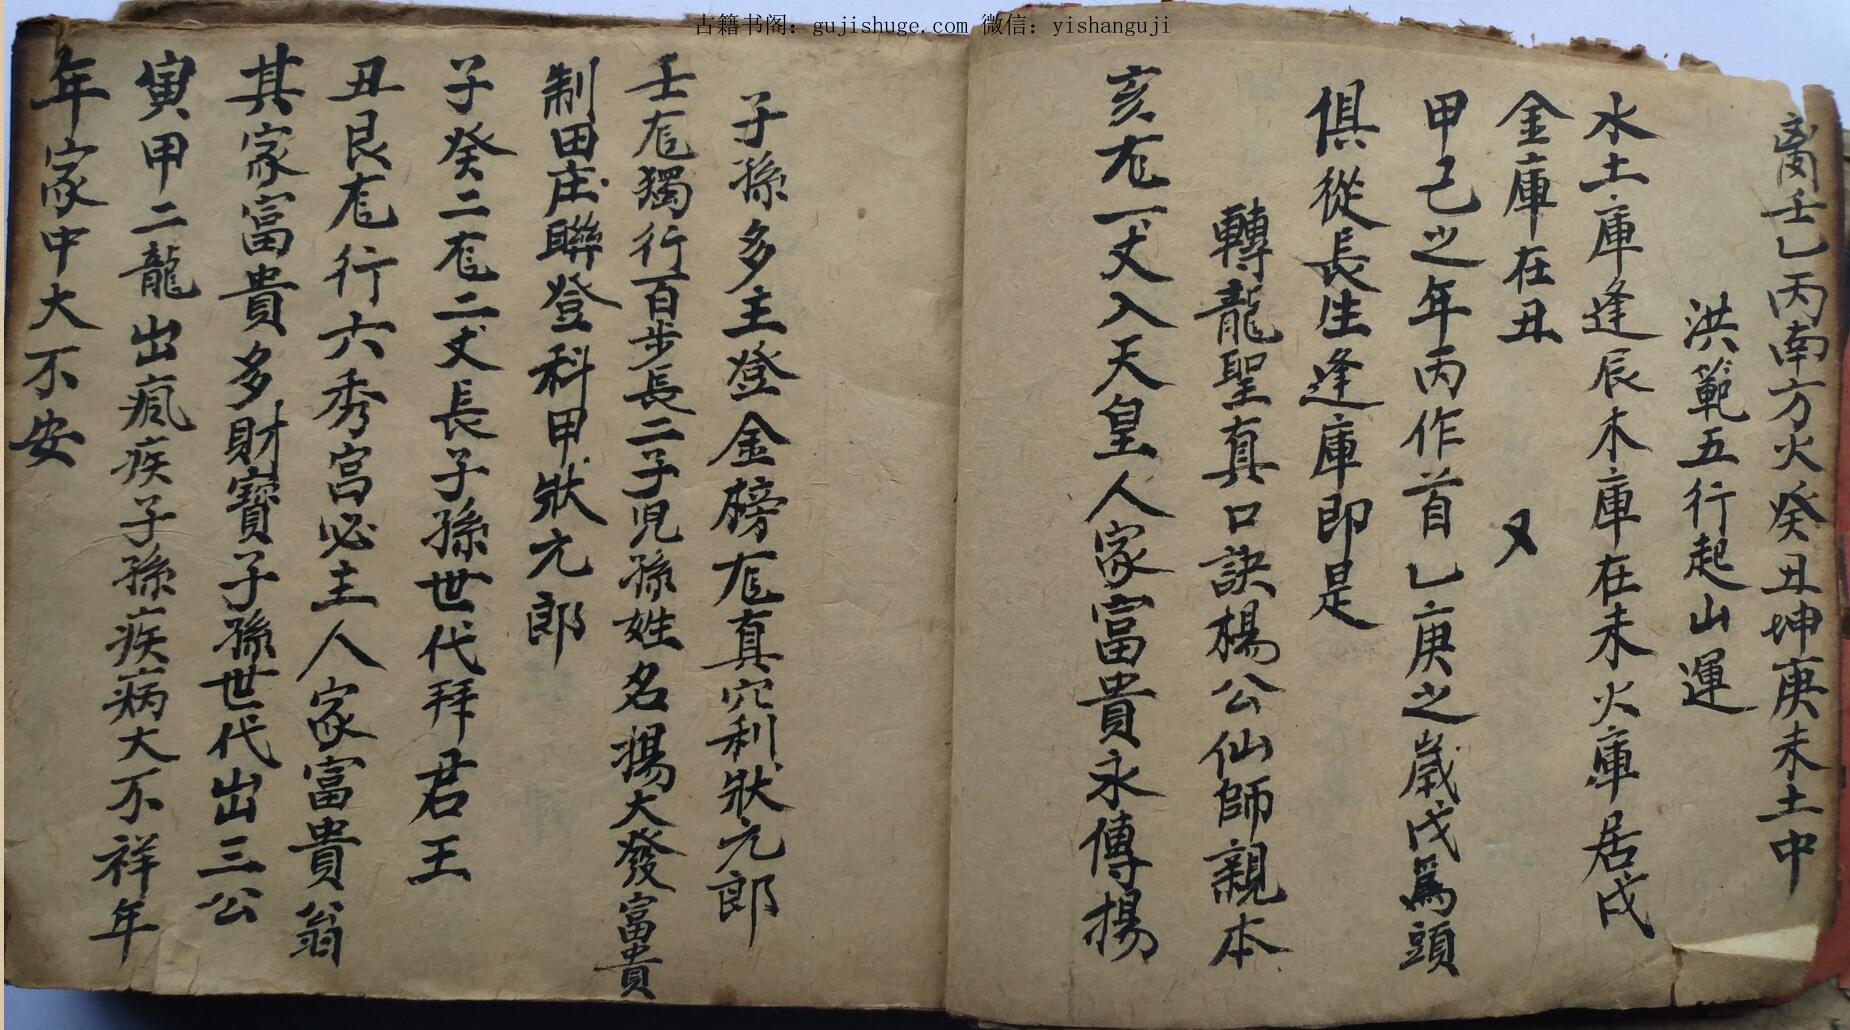 古籍书阁：gujishuge.com 微信：yishanguji
离壬乙丙南方火癸丑坤庚未土中
洪範五行起山運
水土庫逢辰木庫在未火庫居戌
金庫在丑 又
甲己之年丙作首乙庚之歲戊為頭
俱從長生逢庫即是
轉龍聖真口訣楊公仙師親本
亥龙一丈入天皇人家富貴永傳揚
子孫多主登金榜龙真穴利狀元郎
壬龙獨行百步長二子児孫姓名揚大發富貴
制田庄聯登科甲狀元郎
子癸二龙二丈長子孫世代拜君王
丑艮龙行六秀宫必主人家富貴翁
其家富貴多財寶子孫世代出三公
寅甲二龍出瘋疾子孫疾病大不祥年
年家中大不安